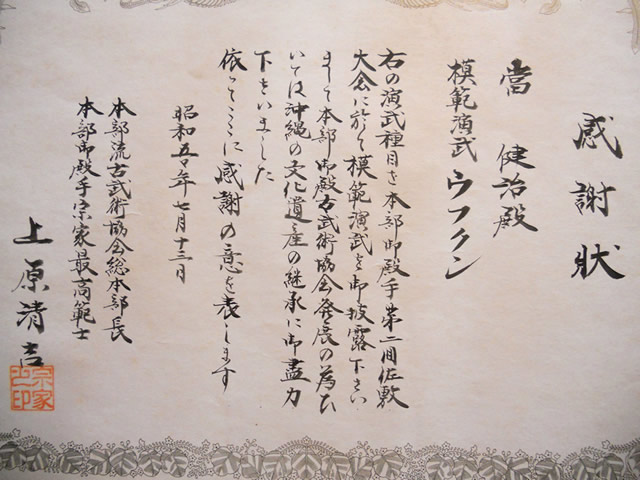 感謝状
當 健治殿
模範演武 ウフクン
右の演武種目を本部御殿手第二回佐敷
大会に於て模範演武を御披露下さい
まして本部御殿古武術協会発展の為ひ
いては沖縄の文化遺産の継承に御盡力
下さいました
依ってここに感謝の意を表します
昭和五二年七月十三日
本部流古武術協会総本部長
本部御殿手宗家最高範士
上原清吉
宗家之印